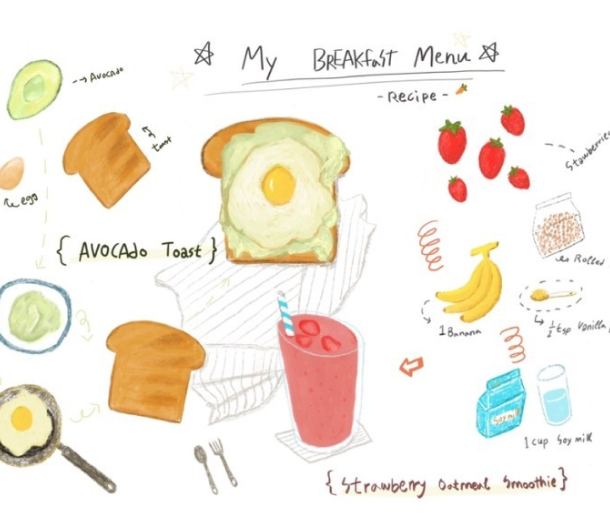 My BREAKfast Menu
- Recipe -
Avocado
toast
egg
{ AVOCAdo Toast }
Stawberries
Rolled
1 Banana
1/2 tsp Vanilla
1 cup Soy milk
{ Strawberry Oatmeal Smoothie }